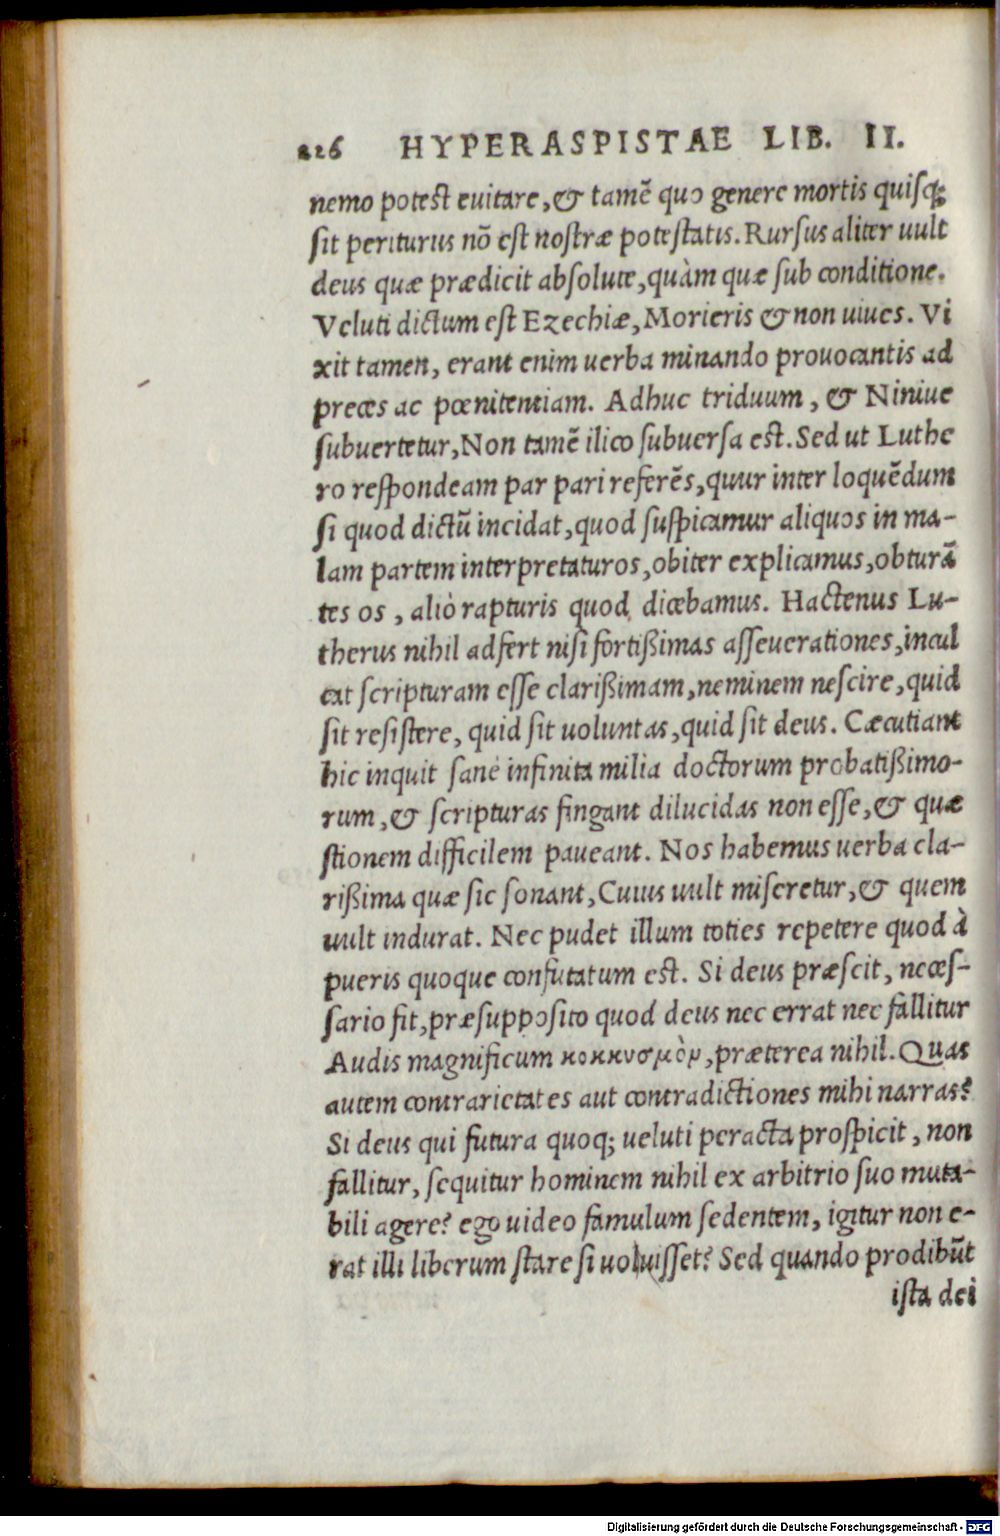 226 HYPERASPISTAE LIB. II.
nemo potest euitare, & tamē quo genere mortis quisq;
sit periturus nō est nostræ potestatis. Rursus aliter uult
deus quæ prædicit absolute, quàm quæ sub conditione.
Veluti dictum est Ezechiæ, Morieris & non uiues. Vi
xit tamen, erant enim uerba minando prouocantis ad
preces ac pœnitentiam. Adhuc triduum, & Niniue
subuertetur, Non tamē ilico subuersa est. Sed ut Luthe
ro respondeam par pari referēs, quur inter loquēdum
si quod dictū incidat, quod suspicamur aliquos in ma-
lam partem interpretaturos, obiter explicamus, obturā
tes os, aliò rapturis quod dicebamus. Hactenus Lu-
therus nihil adfert nisi fortißimas asseuerationes, incul
cat scripturam esse clarißimam, neminem nescire, quid
sit resistere, quid sit uoluntas, quid sit deus. Cæcutiant
hic inquit sanè infinita milia doctorum probatißimo-
rum, & scripturas fingant dilucidas non esse, & quæ
stionem difficilem paueant. Nos habemus uerba cla-
rißima quæ sic sonant, Cuius uult miseretur, & quem
uult indurat. Nec pudet illum toties repetere quod à
pueris quoque confutatum est. Si deus præscit, neces-
sario fit, præsupposito quod deus nec errat nec fallitur
Audis magnificum κοκκυσμὸν, præterea nihil. Quas
autem contrarietates aut contradictiones mihi narras?
Si deus qui futura quoq; ueluti peracta prospicit, non
fallitur, sequitur hominem nihil ex arbitrio suo muta-
bili agere? ego uideo famulum sedentem, igitur non e-
rat illi liberum stare si uoluisset? Sed quando prodibūt
ista dei
Digitalisierung gefördert durch die Deutsche Forschungsgemeinschaft - DFG